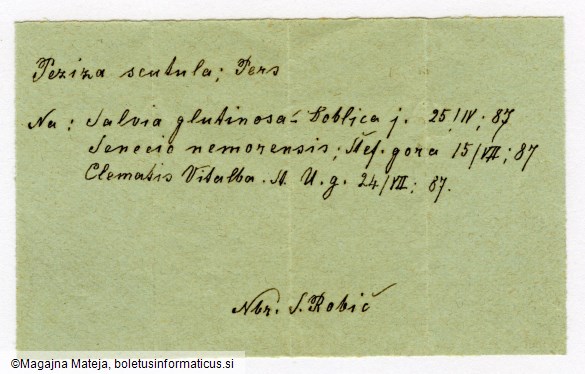 Peziza scutula; Pers
Na: Salvia glutinosa - Doblica j. 25/IV; 87
Senecio nemorensis; Štef. gora 15/VII; 87
Clematis Vitalba. St. U. g. 24/VII; 87.
Nbr. S. Robič
©Magajna Mateja, boletusinformaticus.si